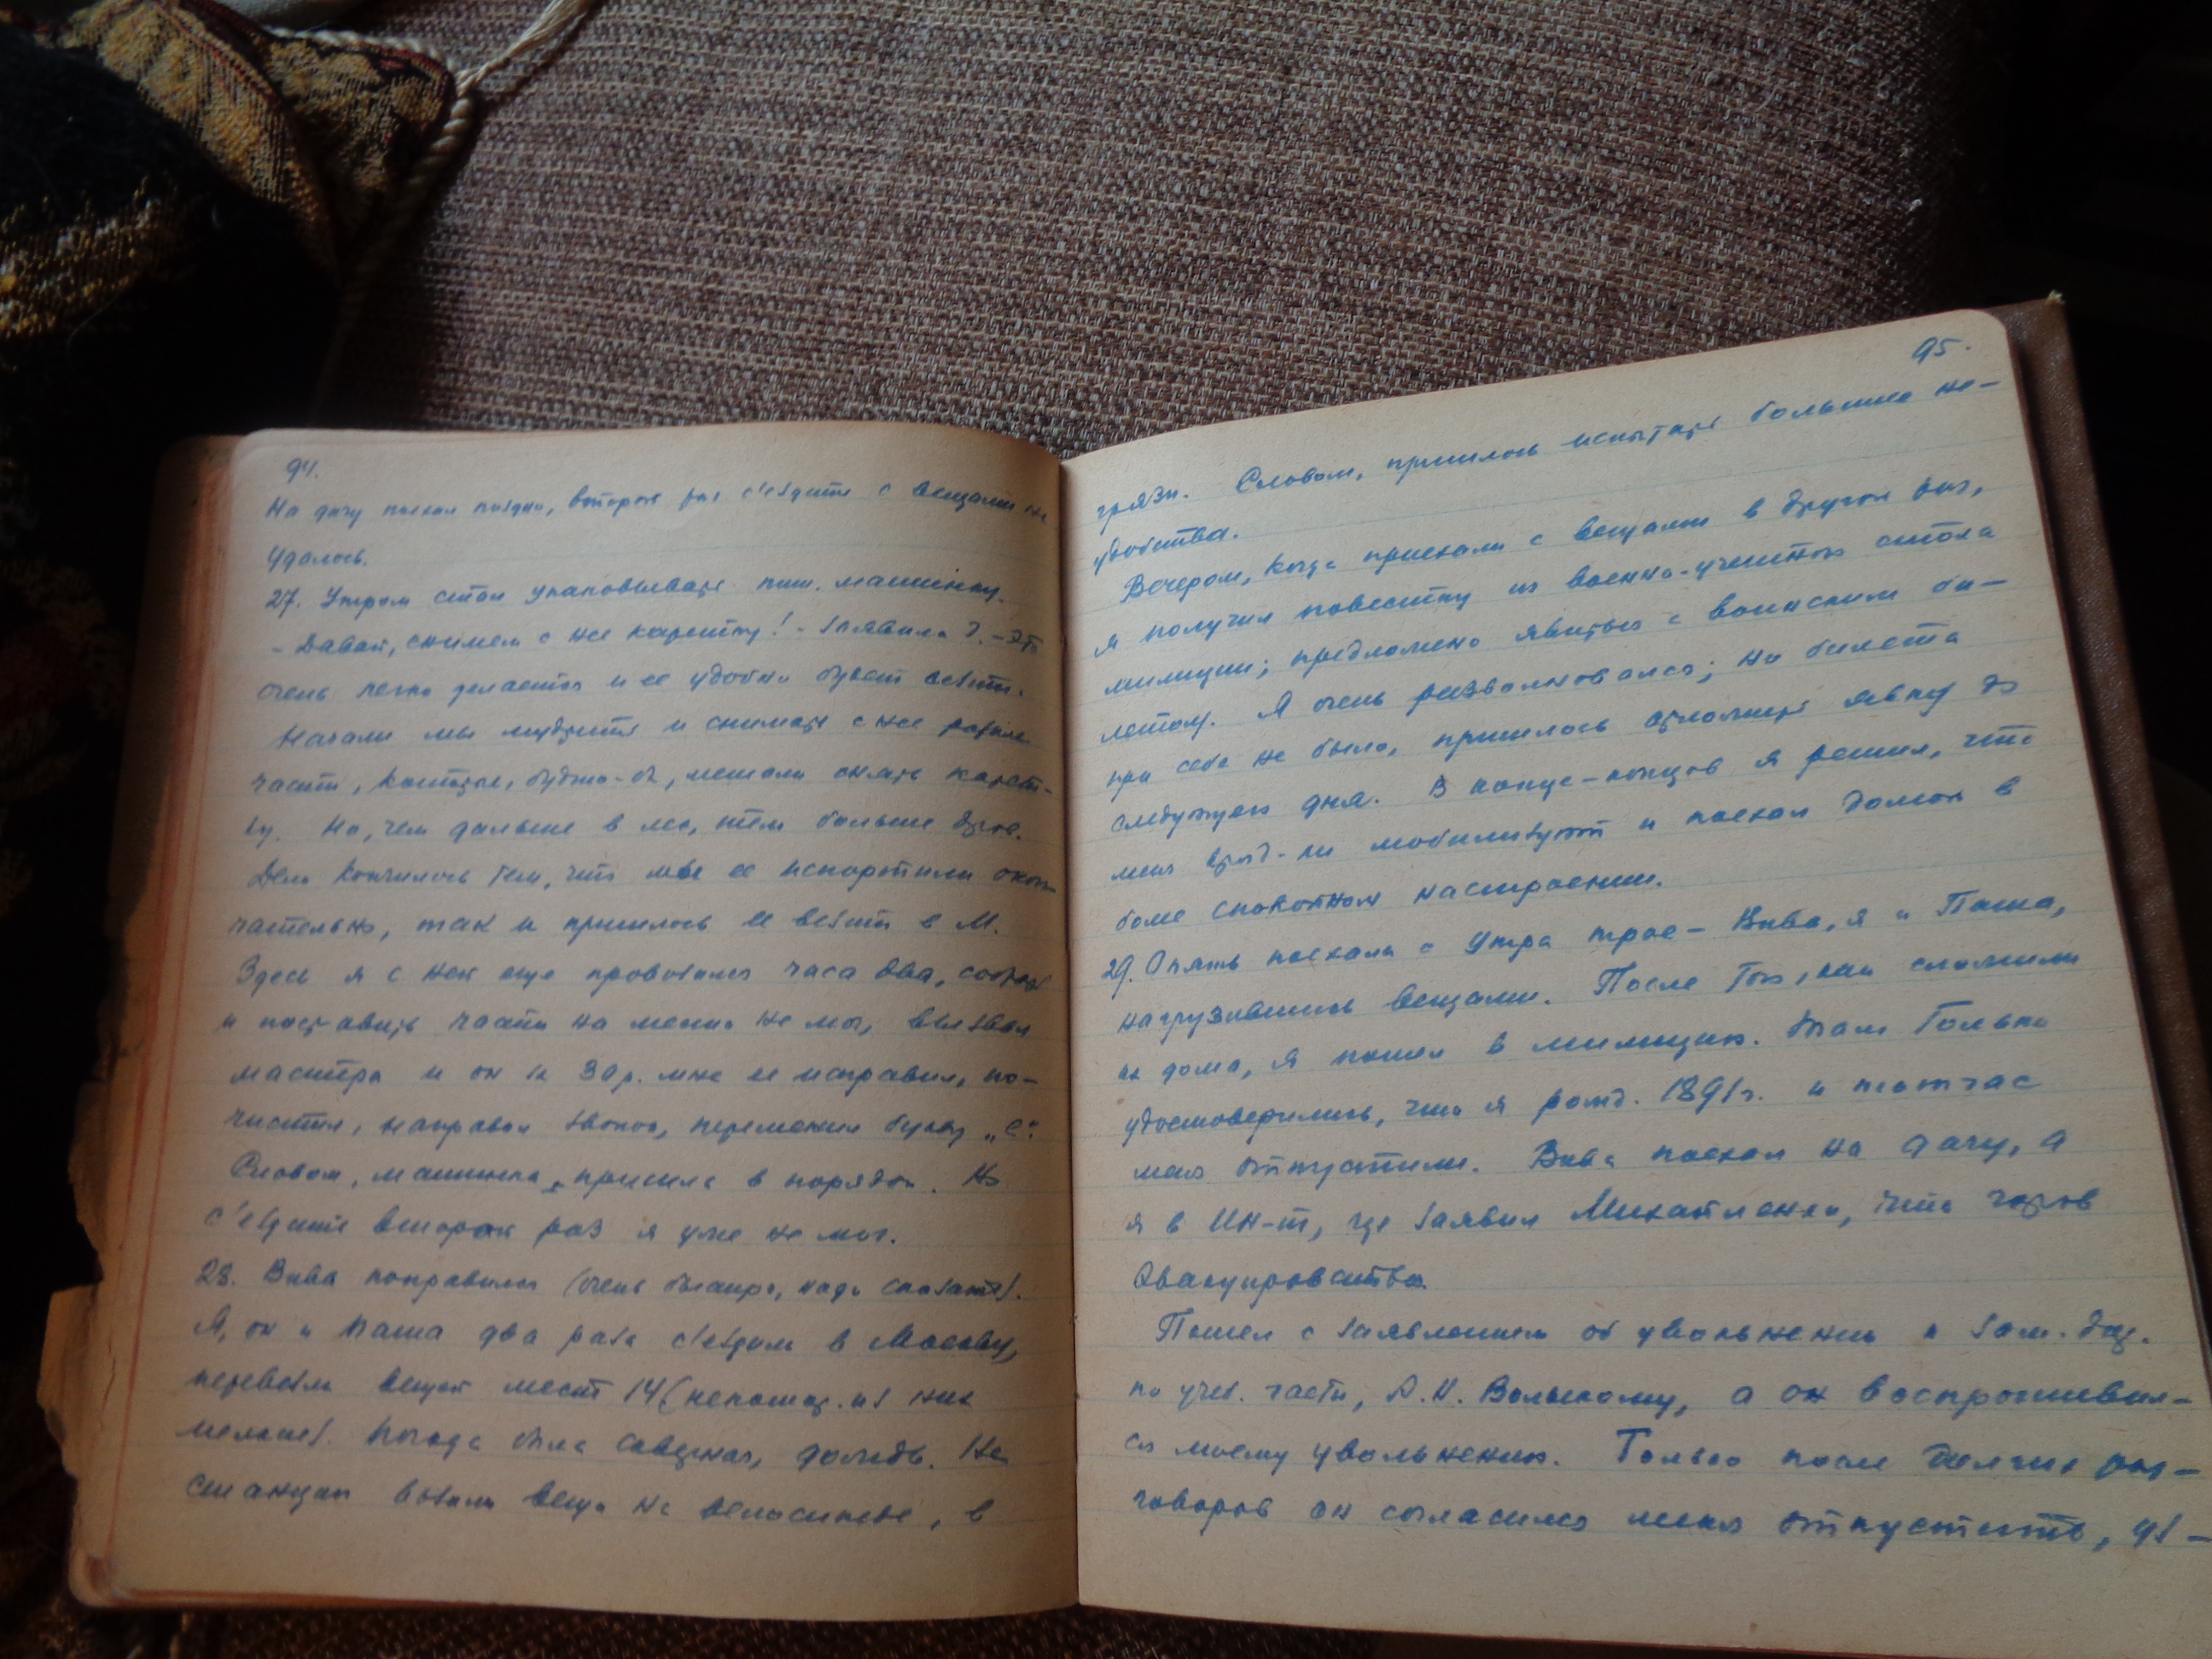 94.
На дачу поехал поздно, второй раз с'ездить с вещами не
удалось.
27. Утром стал упаковывать пиш. машинку.
- Давай, снимем с нее каретку! - заявила Э. - Это
очень легко делается и ее удобно будет везти.
Начали мы мудрить и снимать с нее разные
части, которые, будто-бы, мешали снять карет-
ку. Но, чем дальше в лес, тем больше дров.
Дело кончилось тем, что мы ее испортили окон-
чательно, так и пришлось ее везти в М.
Здесь я с ней еще провозился часа два, собрал
и поставить части на место не мог, вызвал
мастера и он за 30 р. мне ее исправил, по-
чистил, направил звонок, переменил букву „е".
Словом, машинка пришла в порядок. Но
с'ездить второй раз я уже не мог.
28. Вива поправился (очень быстро, надо сказать).
Я, он и Паша два раза с'ездили в Москву,
перевезли вещей мест 14 (некотор. из них
мелкие). Погода была скверная, дождь. На
станцию возили вещи на велосипеде, в
95.
грязи. Словом, пришлось испытать большие не-
удобства.
Вечером, когда приехали с вещами в другой раз,
я получил повестку из военно-учетного стола
милиции; предложено явиться с воинским би-
летом. Я очень разволновался; но билета
при себе не было, пришлось отложить явку до
следующего дня. В конце-концов я решил, что
меня вряд-ли мобилизуют и поехал домой в
более спокойном настроении.
29. Опять поехали с утра трое - Вива, я и Паша,
нагрузившись вещами. После того, как сложили
их дома, я пошел в милицию. Там только
удостоверились, что я рожд. 1891 г. и тотчас
меня отпустили. Вива поехал на дачу, а
я в Ин-т, где заявил Михайленко, что готов
эвакуироваться.
Пошел с заявлением об увольнении к зам. дир.
по учеб. части, А. И. Вольскому, а он воспротивил-
ся моему увольнению. Только после долгих раз-
говоров он согласился меня отпустить, уз-